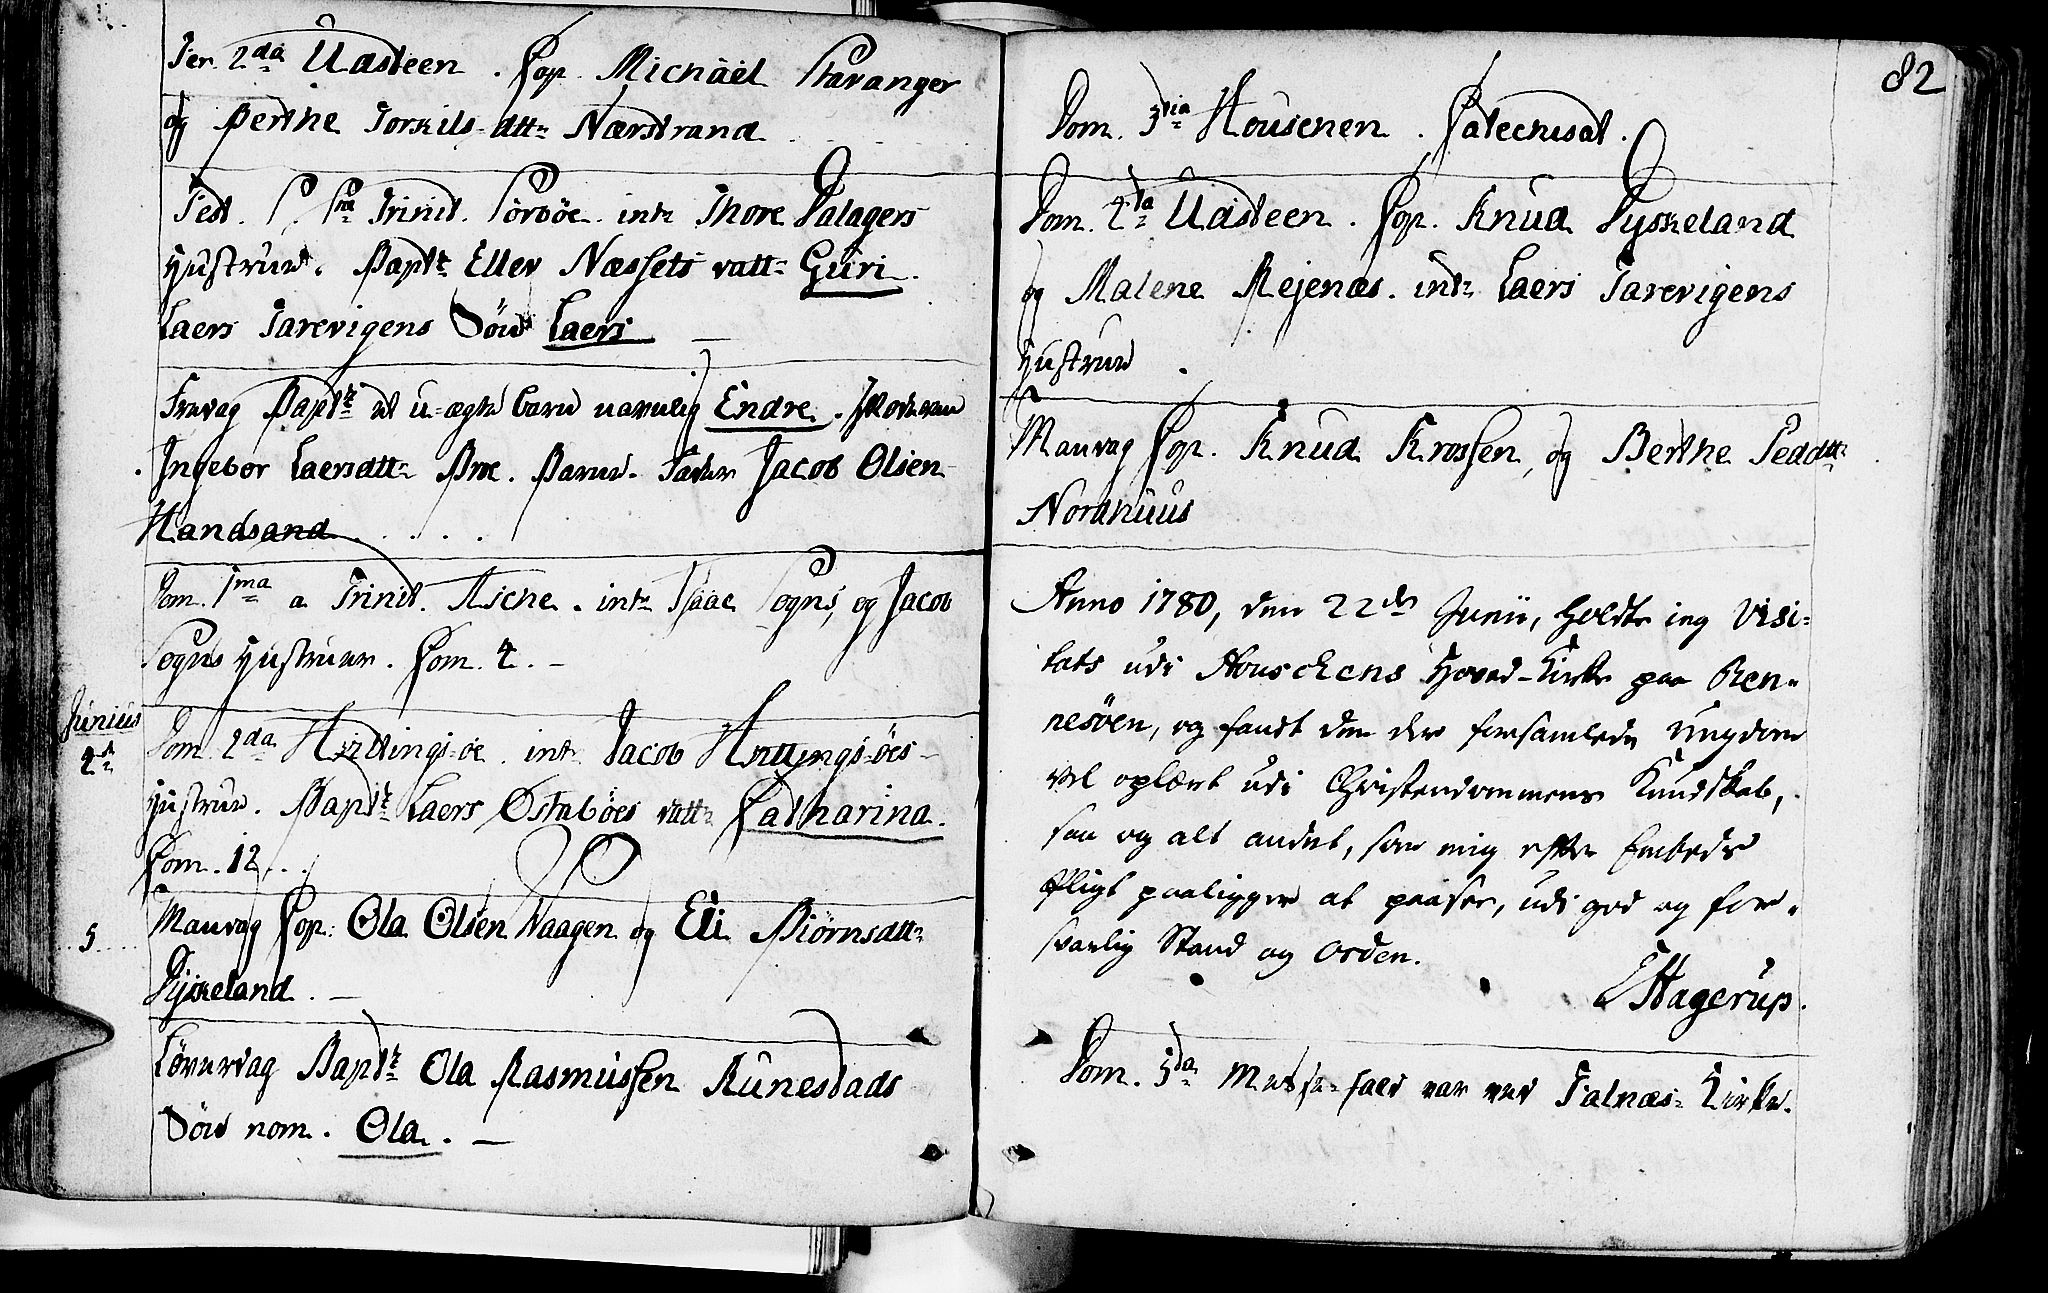 Fer. 2da Udsteen. Cop. Michäel Stavanger
og Berthe Torkils dtt: Nærstrand
Fest. S. S. Trinit. Sörböe. intr. Thore Dalagers
Hustrue. Bapt: Eller Næssets datt: Guri.
Laers Tarevigens Sön Laers
Fredag Bapt: et u-ægte barn navnlig Endre. Moderen
Ingebor Laersdtt: Broe. Barne-Fader Jacob Olsen
Handsand . . . . .
Dom. 1ma a Trinit. Aschе. intr. Isaac Sogns, og Jacob
Sogns Hustruer. Com. 4. —
Junius
4
Dom. 2da Hvittings-öe. intr. Jacob Hvittings-öes
Hustrue. Bapt: Laers Östeböes datt: Catharina.
Com. 12. . .
5
Mandag Cop: Ola Olsen Vaagen og Eli Biörnsdtt:
Dyskeland. —
Löverdag Bapt: Ola Rasmussen Runestads
Sön nom. Ola. —
82
Dom. 3tia Houschen. Catechisat.
Dom. 4ta Udsteen. Cop. Knud Dyskeland
og Malene Rejenæs. intr: Laers Tarevigens
Hustrue.
Mandag Cop. Knud Krossen, og Berthe Pedd:
Nordhuus
Anno 1780, den 22de Junii, holdte ieg Visi=
tats udi Houschens Hoved-Kirke paa Ren=
nesöen, og fandt den der forsamlede Ungdom
vel oplært udi Christendommens Kundskab,
saa og alt andet, som mig efter Embeds
Pligt paaligger at paasee, udi god og for=
svarlig Stand og Orden.
E Hagerup.
Dom. 5ta Messe-fald var ved Talnæs-Kirke.